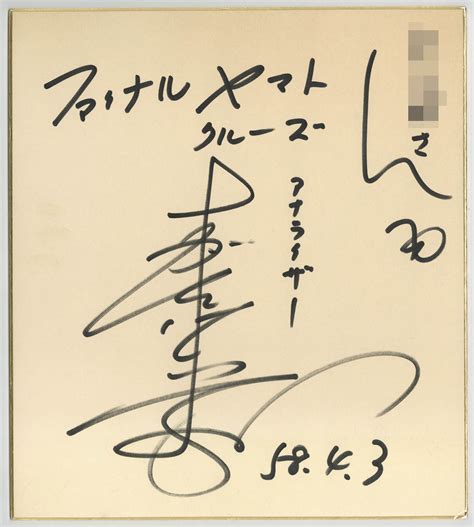 ファイナル ヤマト
クルーズ
さん
アナライザー
58.4.3